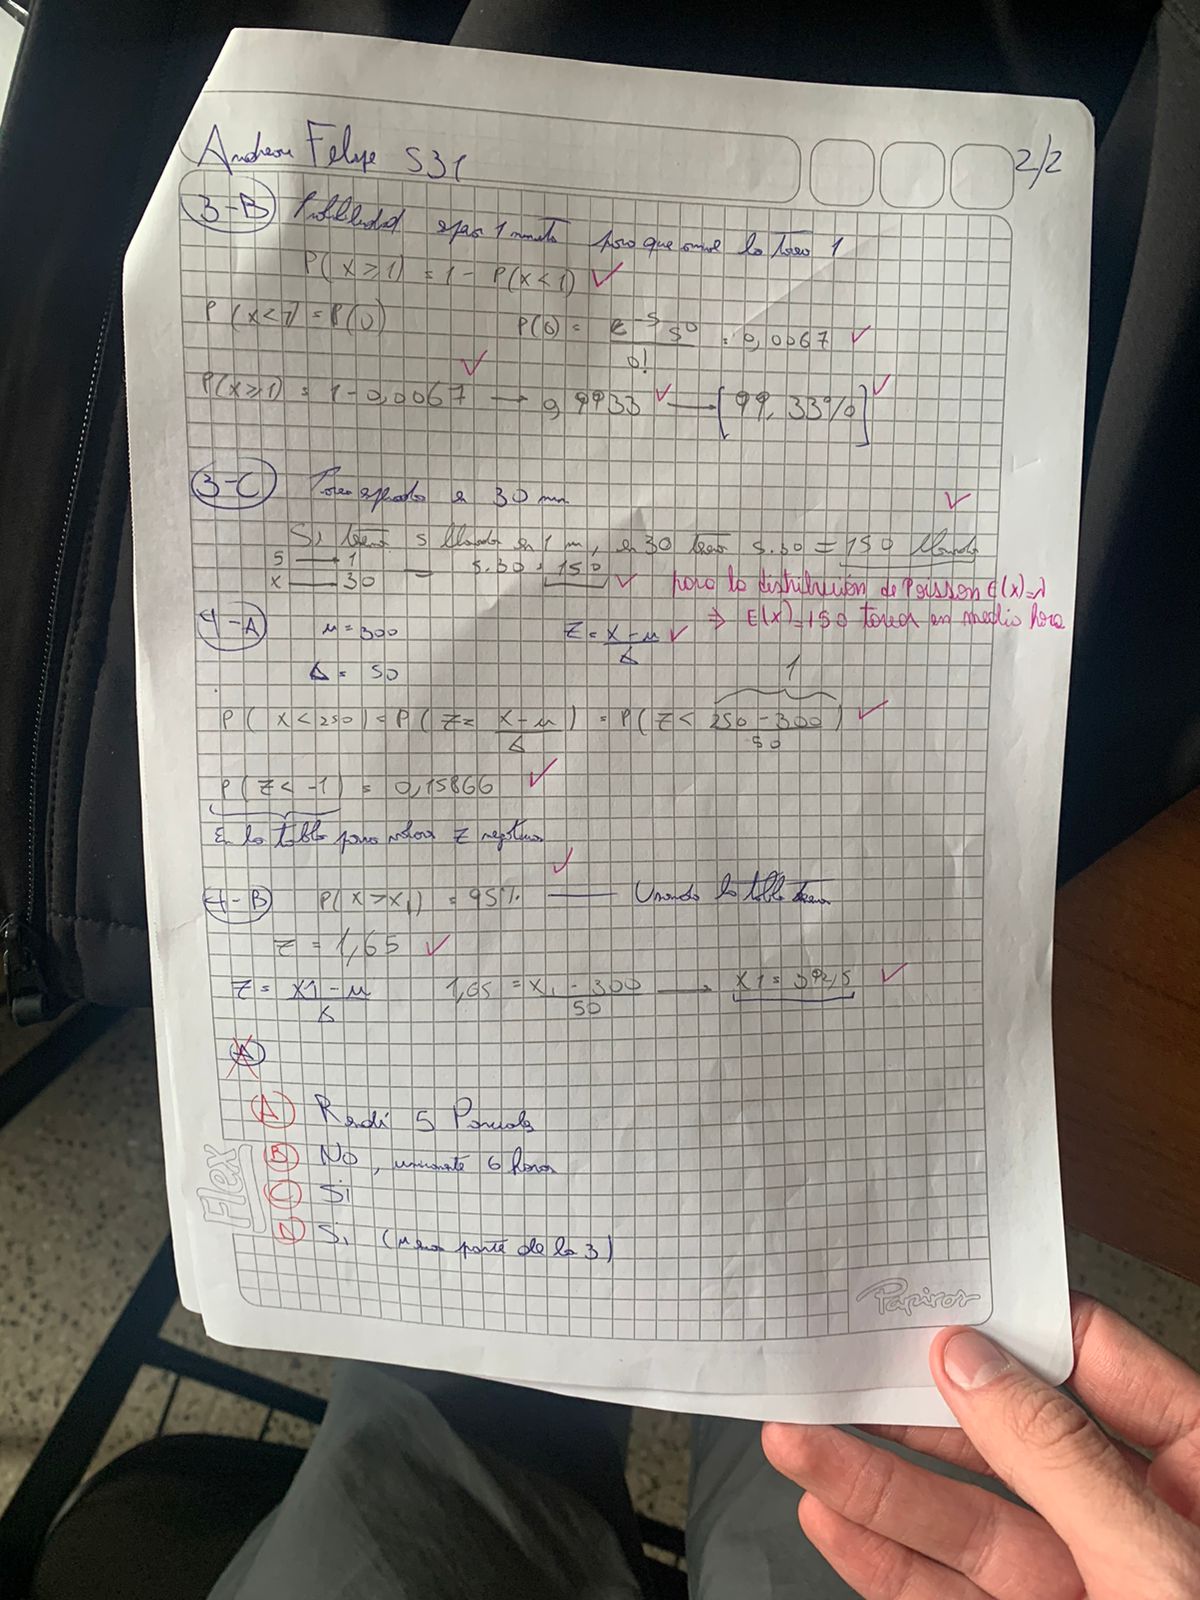 Andreu Felipe S31
2/2
3-B Probabilidad 1 minuto para que la tarea 1
P(x≥1) = 1 - P(x<1) ✓
P(x<1) = P(0) P(0) = e^-5 5^0 / 0! = 0,0067 ✓
P(x≥1) = 1-0,0067 → 0,9933 ✓ → [99,33%] ✓
3-C en 30 min
Si 5 en 1 m, en 30 5.30 = 150
5 — 1
x — 30 — 5.30 = 150 ✓ para la distribución de Poisson E(x)=λ
⇒ E(x)=150 tareas en media hora
4-A μ = 300 Z = x-μ / Δ ✓
Δ = 50
1
P(x<250) = P(Z= x-μ / Δ) = P(Z< 250-300 / 50) ✓
P(Z< -1) = 0,15866 ✓
En la tabla para valores Z negativos
4-B P(x>x1) = 95% ✓ — Usando la tabla
Z = 1,65 ✓
Z = x1-μ / Δ 1,65 = x1-300 / 50 → x1= 382,5 ✓
A
A Rendí 5 Parciales
B No, 6 horas
C Si
D Si (menos parte de la 3)
Flex
Papiros